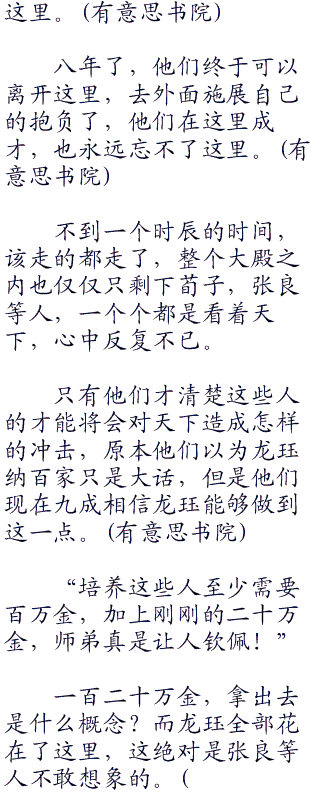 这里。（有意思书院）
八年了，他们终于可以
离开这里，去外面施展自己
的抱负了，他们在这里成
才，也永远忘不了这里。（有
意思书院）
不到一个时辰的时间，
该走的都走了，整个大殿之
内也仅仅只剩下荀子，张良
等人，一个个都是看着天
下，心中反复不已。
只有他们才清楚这些人
的才能将会对天下造成怎样
的冲击，原本他们以为龙珏
纳百家只是大话，但是他们
现在九成相信龙珏能够做到
这一点。（有意思书院）
“培养这些人至少需要
百万金，加上刚刚的二十万
金，师弟真是让人钦佩！”
一百二十万金，拿出去
是什么概念？而龙珏全部花
在了这里，这绝对是张良等
人不敢想象的。（